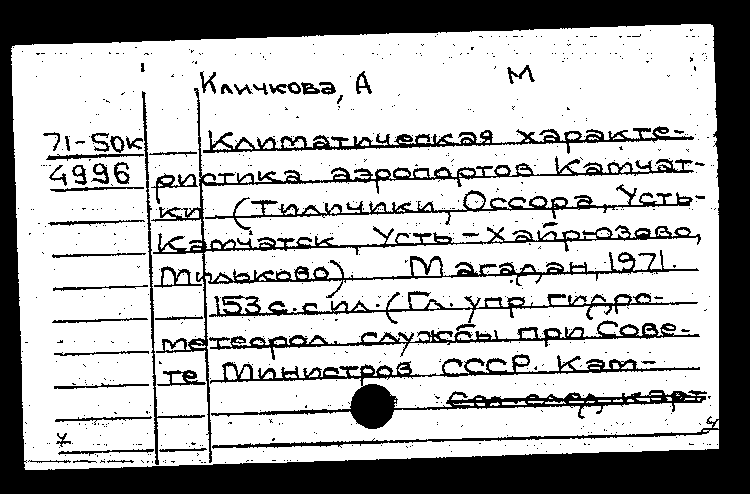 Кличкова, А М
71-50к Климатическая характе-
4996 ристика аэропортов Камчат-
ки (Тиличики, Оссора, Усть-
Камчатск, Усть-Хайрюзово,
Мильково). Магадан, 1971.
153 с. с ил. (Гл. упр. гидро-
метеорол. службы при Сове-
те Министров СССР. Кам-
См. след. карт